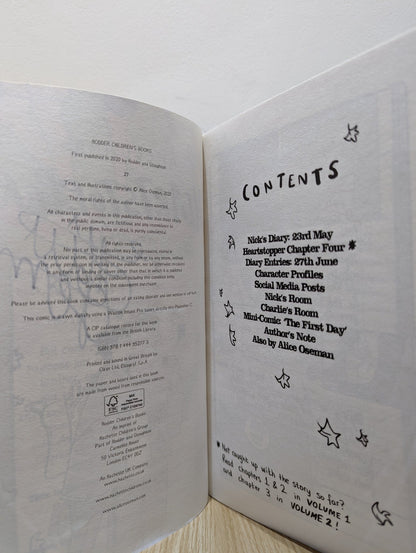 HODDER CHILDREN'S BOOKS
First published in 2020 by Hodder and Stoughton
27
Text and illustrations copyright © Alice Oseman, 2020
The moral rights of the author have been asserted.
All characters and events in this publication, other than those clearly
in the public domain, are fictitious and any resemblance to
real persons, living or dead, is purely coincidental.
All rights reserved.
No part of this publication may be reproduced, stored in
a retrieval system, or transmitted, in any form or by any means, without
the prior permission in writing of the publisher, nor be otherwise circulated
in any form of binding or cover other than that in which it is published
and without a similar condition including this condition being
imposed on the subsequent purchaser.
Please be advised this book contains
This comic is drawn digitally using a Wacom Intuos Pro
A CIP catalogue record for this book
is available from the British Library.
Printed and bound in Great Britain by
Clays Ltd, Elcograf S.p.A
The paper and board used in this book
are made from wood from responsible sources.
FSC
Hodder Children's Books
An imprint of
Hachette Children's Group
Part of Hodder and Stoughton
Carmelite House
50 Victoria Embankment
London EC4Y 0DZ
An Hachette UK Company
www.hachette.co.uk
www.hachettechildrens.co.uk
CONTENTS
Nick's Diary: 23rd May
Heartstopper Chapter Four *
Diary Entries: 27th June
Character Profiles
Social Media Posts
Nick's Room
Charlie's Room
Mini-Comic 'The First Day'
Author's Note
Also by Alice Oseman
* Not caught up with the story so far?
Read chapters 1 & 2 in VOLUME 1
and chapter 3 in VOLUME 2!